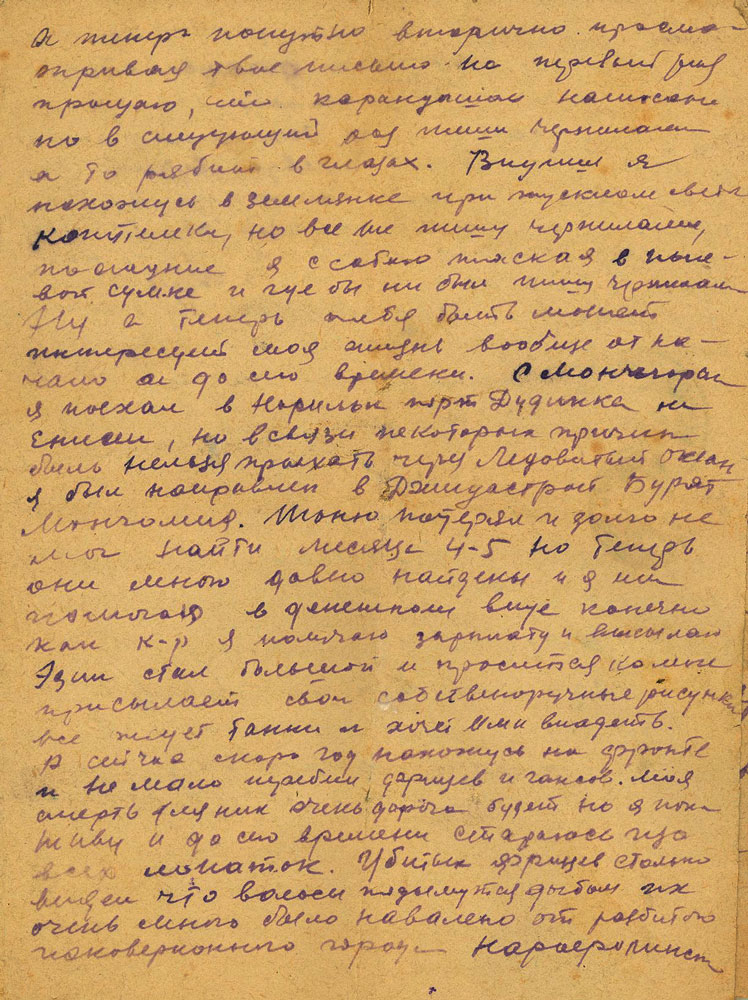 А теперь попутно вторично просма-
тривая твое письмо на первый раз
прощаю, что карандашом написано
но в следующий раз пиши чернилами
а то рябит в глазах. Видишь я
нахожусь в землянке при тусклом свете
коптилки, но все же пишу чернилами,
последние я с собою таскаю в поле-
вой сумке и где бы ни был пишу чернилами
Ну а теперь тебя быть может
интересует моя жизнь вообще от на-
чала и до сего времени. С Мончегорска
я поехал в Норильск порт Дудинка на
Енисеи, но в связи некоторых причин
было нельзя проехать через Ледовитый океан
я был направлен в Джидастрой Бурят
Монголия. Тоню потерял и долго не
мог найти месяца 4-5 но теперь
они мною давно найдены и я им
помогаю в денежном виде конечно
как к-р я получаю зарплату и высылаю
Эдик стал большой и просится ко мне
присылает свои собственоручные рисунки
все рисует танки и хочет ими владеть.
Я сейчас скоро год нахожусь на фронте
и не мало перебил фрицев и гансов. Моя
смерть для них очень дорога будет но я пока
живу и до сего времени стараюсь изо
всех лопаток. Убитых фрицев столько
видел что волоса подымутся дыбом их
очень много было навалено от разбитого
исковерканного города Нарофоминск